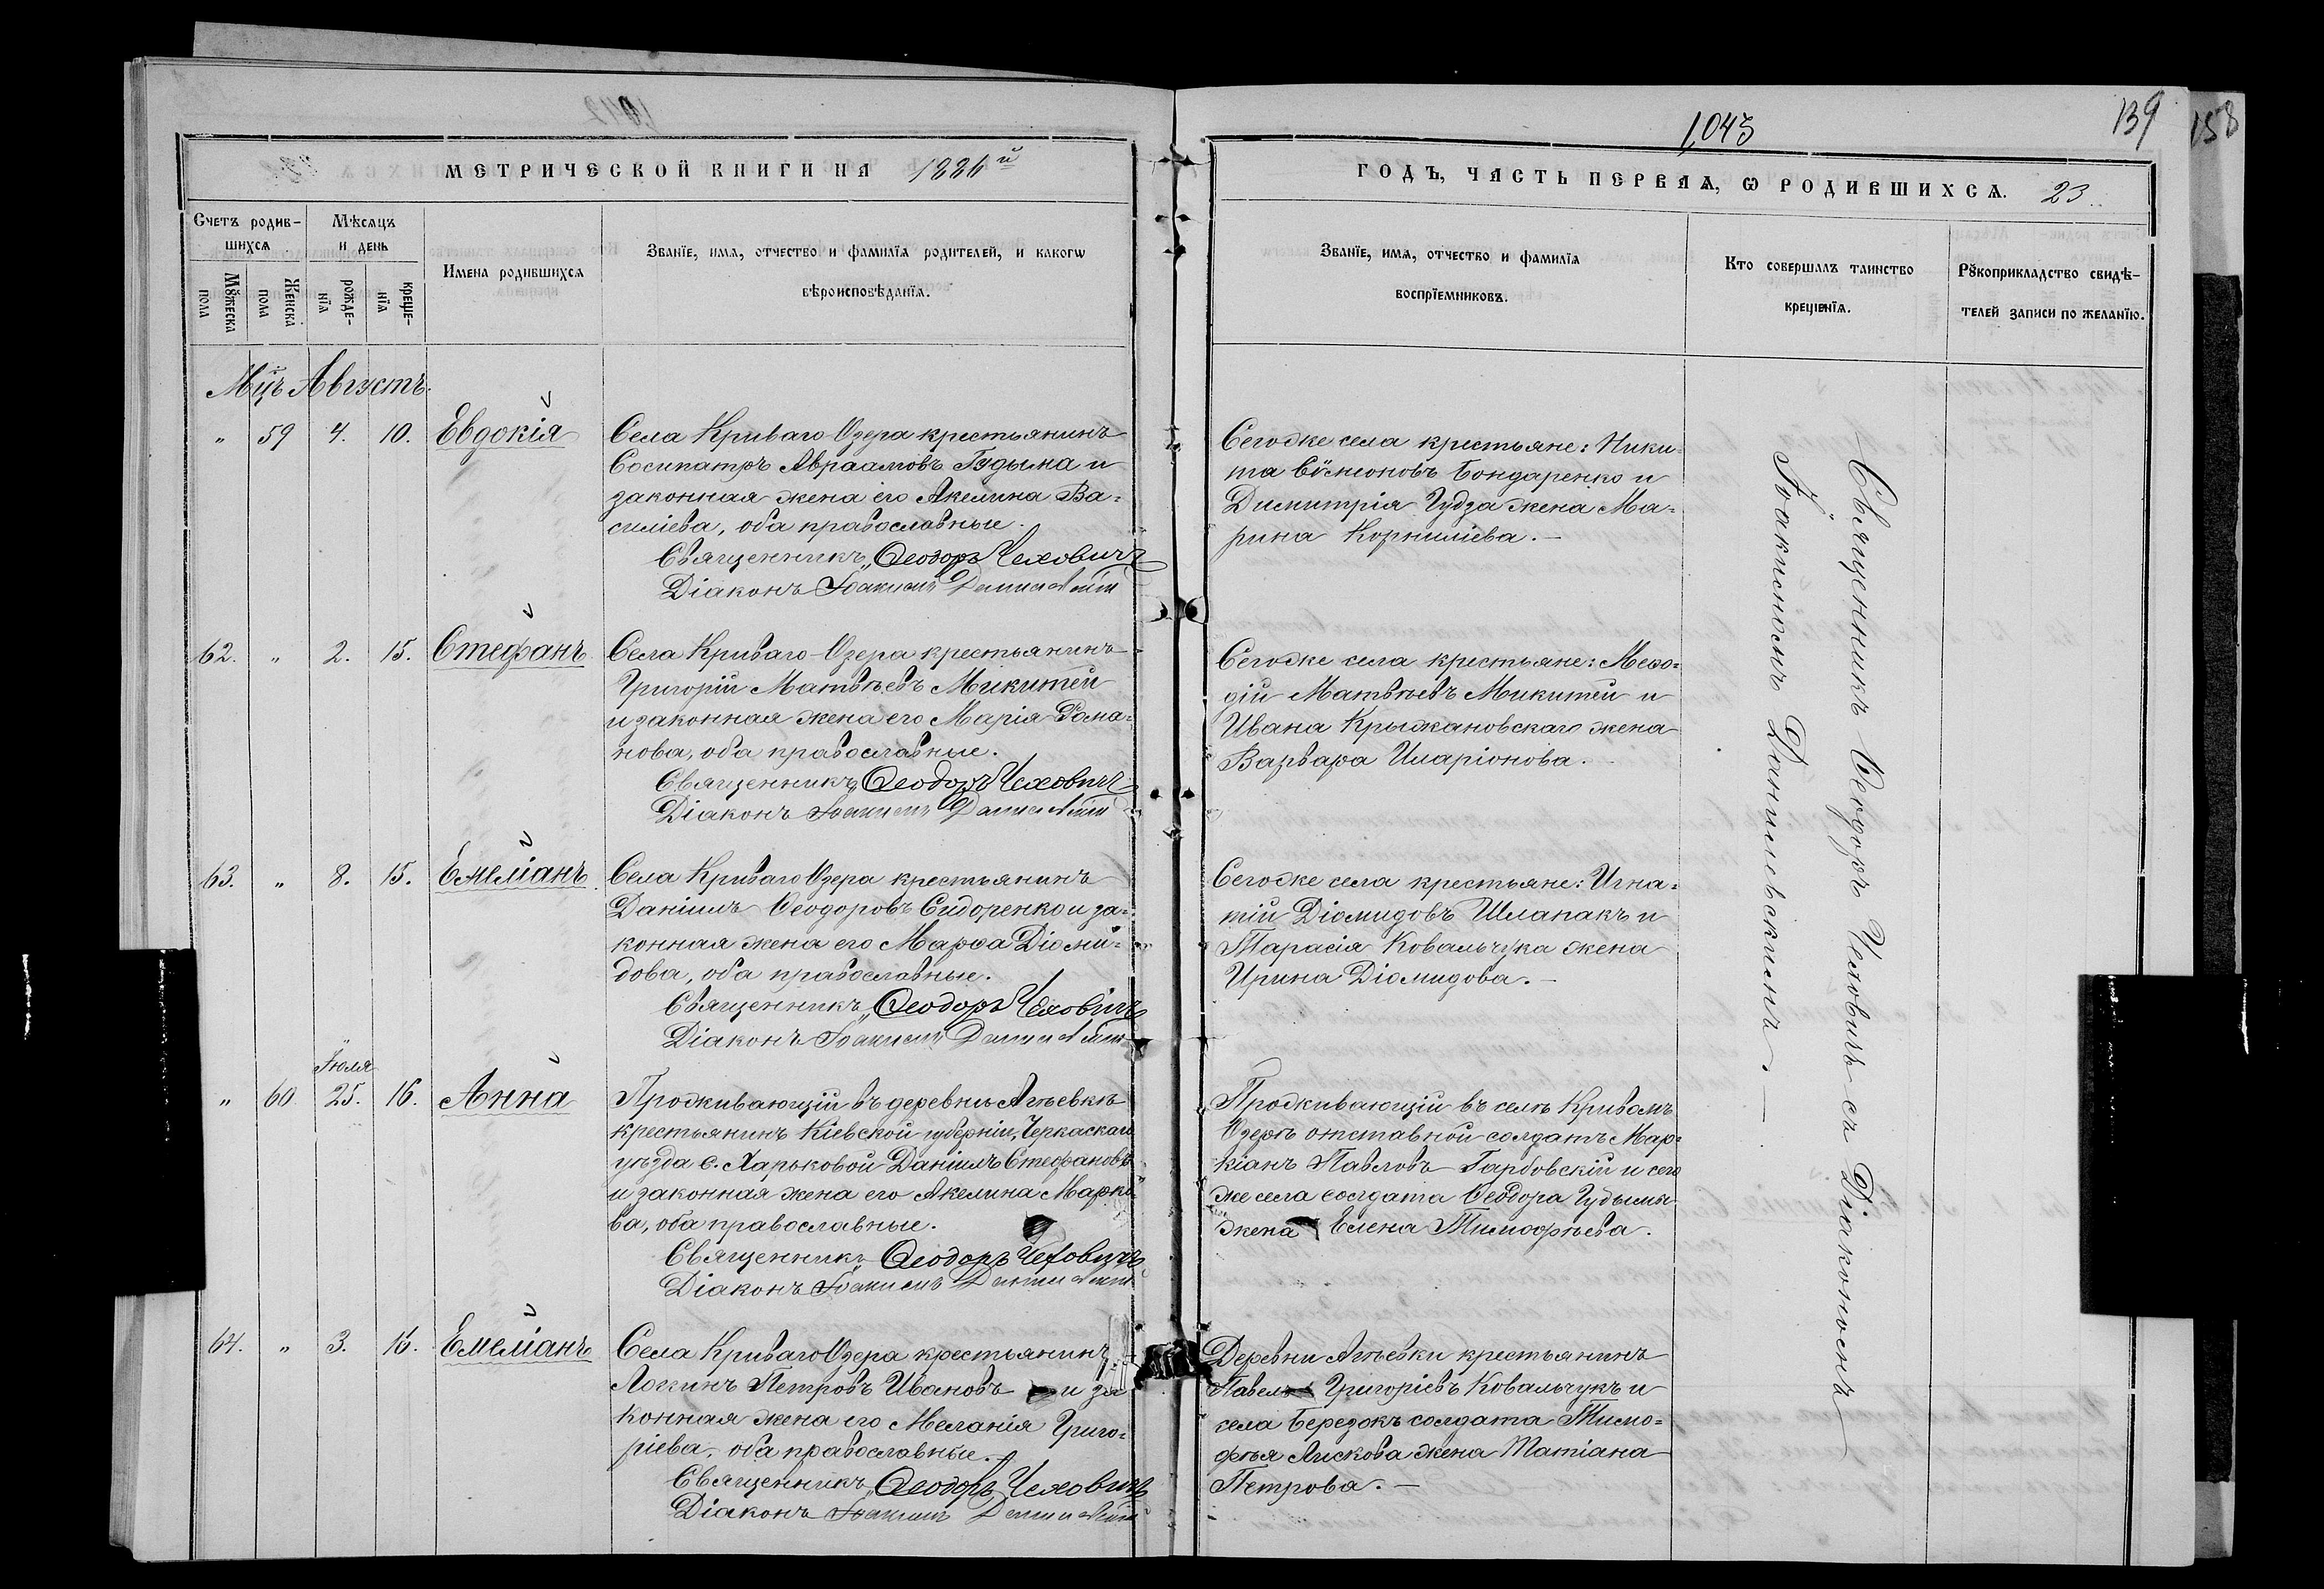 1,043
139
158
МЕТРИЧЕСКОЙ КНИГИ НА 1886й
ГОДЪ, ЧАСТЬ ПЕРВАЯ, Ѡ РОДИВШИХСѦ. 23
Счетъ родив-
шихсѧ
Мѣсѧцъ
и день
Мꙋжеска
пола
Женска
пола
рожде-
нїѧ
креще-
нїѧ
Имена родившихсѧ
Званїе, имѧ, отчество и фамилїѧ родителей, и какогѡ
вѣроисповѣданїѧ.
Званїе, имѧ, отчество и фамилїѧ
воспрїемниковъ.
Кто совершалъ таинство
крещенїѧ.
Рꙋкоприкладство свидѣ-
телей записи по желанїю.
Мцъ Августъ.
„ 59 4. 10. Евдокія
Села Криваго Озера крестьянинъ
Сосипатръ Авраамовъ Гудыма и
законная жена его Акелина Ва-
силіева, оба православные.
Священникъ Ѳеодоръ Чеховичъ
Діаконъ Іоакимъ
Сегоже села крестьяне: Ники-
та Сѵмеоновъ Бондаренко и
Димитрія Гудза жена Ма-
рина Корниліева. —
62. „ 2. 15. Стефанъ
Села Криваго Озера крестьянинъ
Григорій Матвѣевъ Микитей
и законная жена его Марія Рома-
нова, оба православные.
Священникъ Ѳеодоръ Чеховичъ
Діаконъ Іоакимъ
Сегоже села крестьяне: Меѳо-
дій Матвѣевъ Микитей и
Ивана Крыжановскаго жена
Варвара Иларіонова.
63. „ 8. 15. Емеліанъ
Села Криваго Озера крестьянинъ
Даніилъ Ѳеодоровъ Сидоренко и за-
конная жена его Марѳа Діоми-
дова, оба православные.
Священникъ Ѳеодоръ Чеховичъ
Діаконъ Іоакимъ
Сегоже села крестьяне: Игна-
тій Діомидовъ Шлапакъ и
Тарасія Ковальчука жена
Ирина Діомидова. —
Іюля
„ 60 25. 16. Анна
Проживающій въ деревнѣ Агѣевкѣ
крестьянинъ Кіевской губерніи, Черкаскаго
уѣзда с. Харьковой Даніилъ Стефановъ
и законная жена его Акелина Марко-
ва, оба православные.
Священникъ Ѳеодоръ Чеховичъ
Діаконъ Іоакимъ
Проживающій въ селѣ Кривомъ
Озерѣ отставной солдатъ Мар-
кіанъ Павловъ Гарбовскій и сего
же села солдата Ѳеодора Гудымы
жена Елена Тимофѣева.
64. „ 3. 16. Емеліанъ
Села Криваго Озера крестьянинъ
Логинъ Петровъ Ивановъ и за
конная жена его Меланія Григо-
ріева, оба православные.
Священникъ Ѳеодоръ Чеховичъ
Діаконъ Іоакимъ
Деревни Агѣевки крестьянинъ
Павелъ Григоріевъ Ковальчукъ и
села Березокъ солдата Тимо-
фѣя Лискова жена Татіана
Петрова. —
Священникъ Ѳеодоръ Чеховичъ съ Діакономъ
Іоакимомъ Данилевскимъ. —